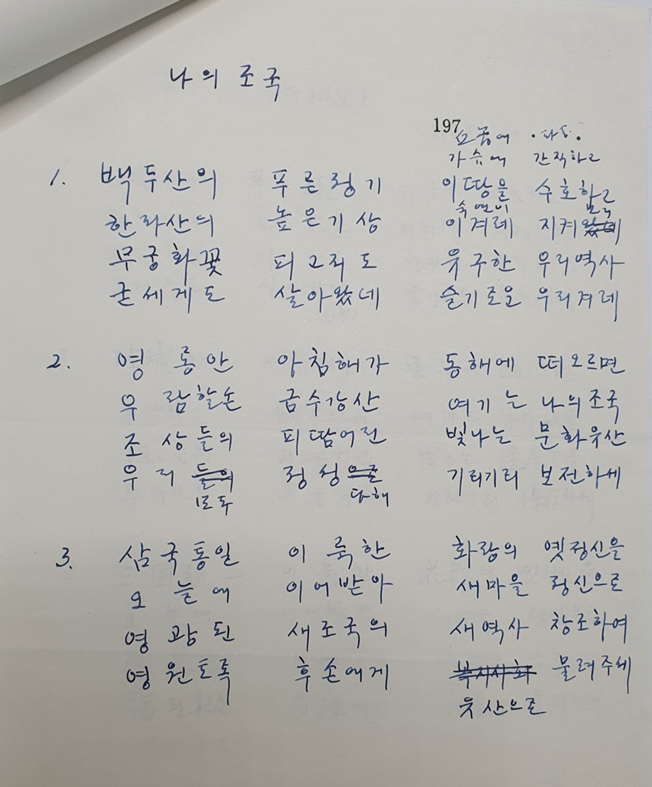 나의 조국
197
가슴에 간직하고
1. 백두산의 푸른정기 이땅을 수호하고
한라산의 높은기상 이겨레 지켜왔네
무궁화꽃 피고지도 유구한 우리역사
굳세게도 살아왔네 슬기로운 우리겨레
2. 영롱안 아침해가 동해에 떠오르면
우람할손 금수강산 여기는 나의조국
조상들의 피땀어린 빛나는 문화유산
우리 들의 정성으로 기리기리 보전하세
모두 다해
3. 삼국통일 이룩한 화랑의 옛정신을
오늘에 이어받아 새마을 정신으로
영광된 새조국의 새역사 창조하여
영원토록 후손에게 복지사회 물려주세
유산으로